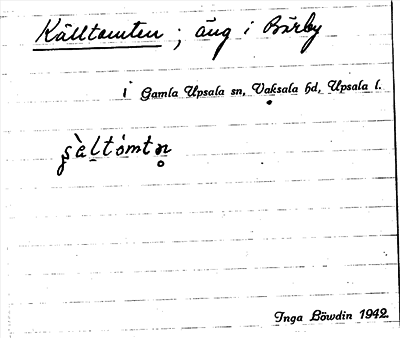 Källtomten ; äng i Bärby
i Gamla Upsala sn, Vaksala hd, Upsala l.
Inga Löwdin 1942.